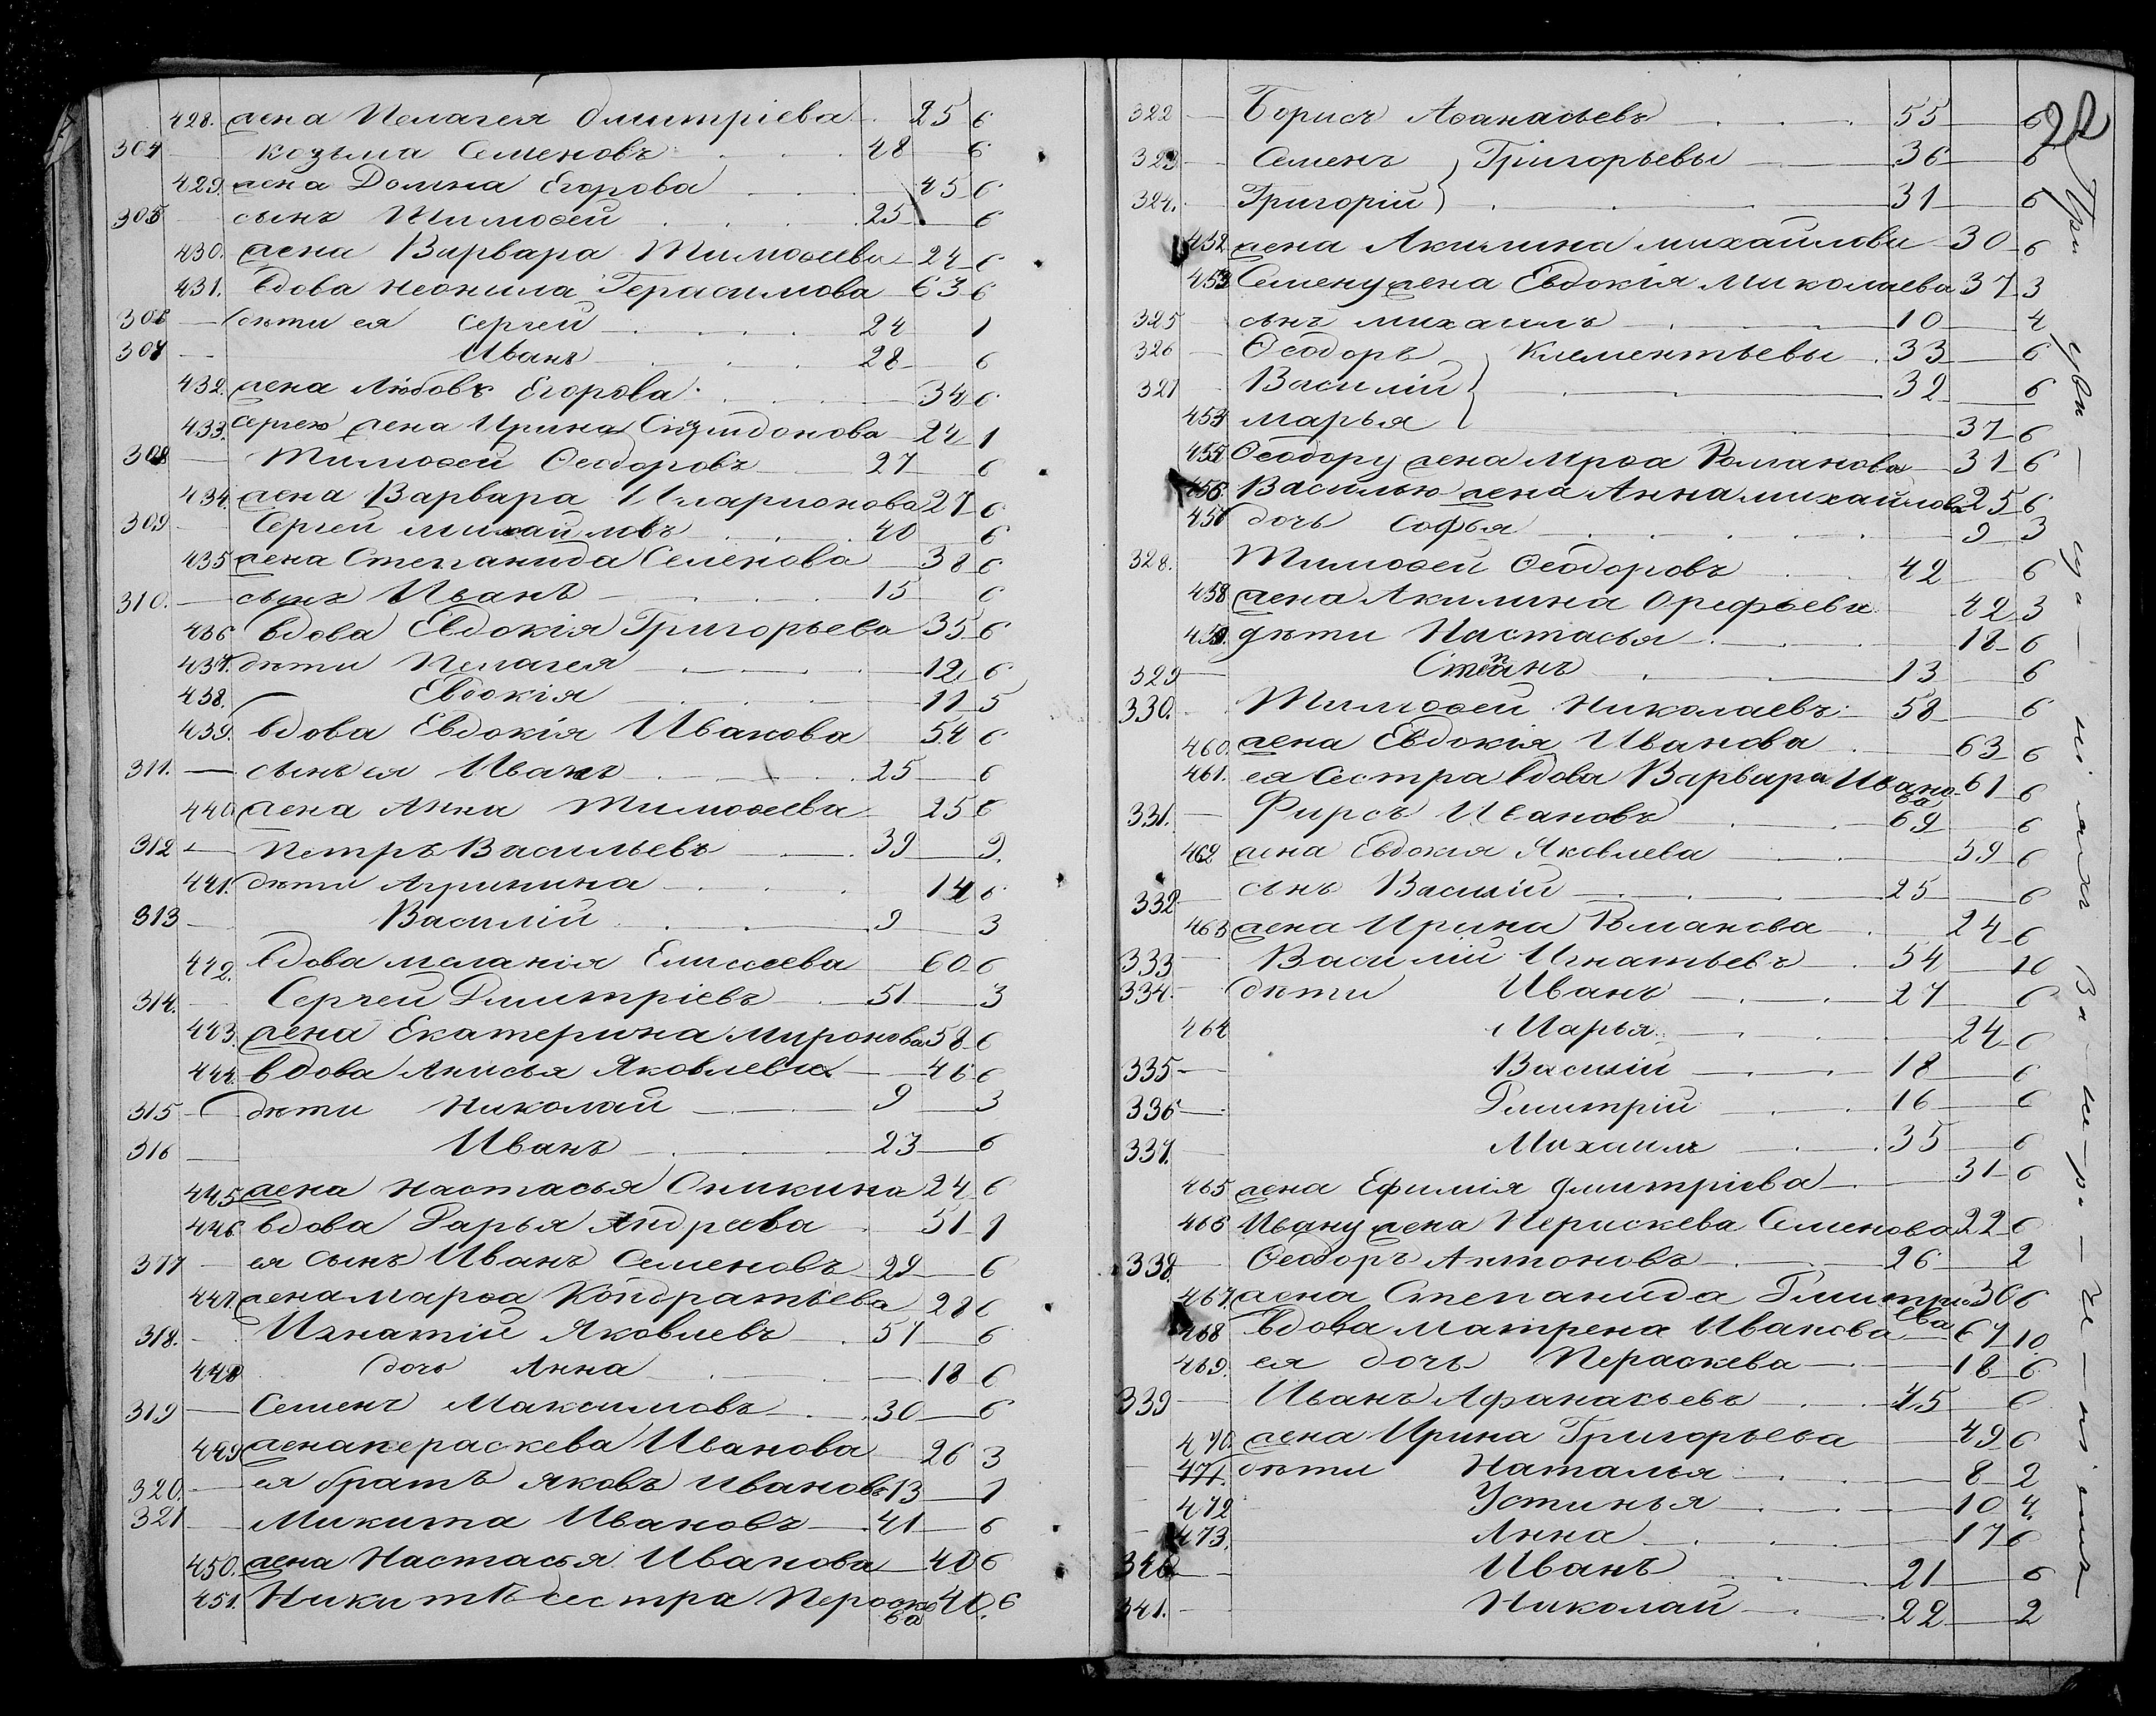 428. жена Пелагея Дмитріева 25 6
304 Козьма Семеновъ 48 6
429. жена Домна Егорова 45 6
305 сынъ Тимоѳей 25 6
430. жена Варвара Тимоѳеева 24 6
431. вдова Неонила Герасимова 63 6
306 дѣти ея Сергей 24 1
307 Иванъ 28 6
432. жена Любовь Егорова 34 6
433. Сергею жена Ирина Спиридонова 24 1
308 Тимоѳей Ѳеодоровъ 27 6
434. жена Варвара Иларионова 27 6
309 Сергей Михайловъ 40 6
435 жена Степанида Семенова 38 6
310. сынъ Иванъ 15 6
436 вдова Евдокія Григорьева 35 6
437. дѣти Пелагея 12 6
438. Евдокія 11 5
439. вдова Евдокія Иванова 54 6
311. сынъ ея Иванъ 25 6
440. жена Анна Тимоѳеева 25 6
312 Петръ Васильевъ 39 9.
441. дѣти Агрипина 14 6
313 Василій 9 3
442. вдова Меланія Елисеева 60 6
314. Сергей Дмитріевъ 51 3
443. жена Екатерина Миронова 58 6
444. вдова Анисья Яковлева 46 6
315 дѣти Николай 9 3
316 Иванъ 23 6
445 жена Настасья Аникина 24 6
446. вдова Дарья Андреева 51 1
317 ея сынъ Иванъ Семеновъ 29 6
447. жена Марѳа Кондратьева 28 6
318. Игнатій Яковлевъ 57 6
448 дочь Анна 18 6
319 Семенъ Максимовъ 30 6
449 жена Пераскева Иванова 26 3
320. ея братъ Яковъ Ивановъ 13 1
321 Микита Ивановъ 41 6
450. жена Настасья Иванова 40 6
451. Никитѣ сестра Пераскева 40. 6
322 Борисъ Аѳанасьевъ 55 6
323 Семенъ } Григорьевы 36 6
324. Григорій } 31 6
452 жена Акилина Михайлова 30 6
453 Семену жена Евдокія Миколаева 37 3
325 сынъ Михаилъ 10 4
326 Ѳеодоръ } Клементьевы 33 6
327 Василій } 32 6
453 Марья } 37 6
455 Ѳеодору жена Марѳа Романова 31 6
456. Василью жена Анна Михайлова 25 6
457 дочь Софья 9 3
328. Тимоѳей Ѳеодоровъ 42 6
458 жена Акилина Орефьева 42 3
459. дѣти Настасья 18 6
329 Степанъ 13 6
330. Тимоѳей Николаевъ 58 6
460. жена Евдокія Иванова 63 6
461. ея сестра вдова Варвара Иванова 61 6
331. Фирсъ Ивановъ 69 6
462 жена Евдокия Яковлева 59 6
332 сынъ Василій 25 6
463 жена Ирина Романова 24 6
333 Василій Игнатьевъ 54 10
334. дѣти Иванъ 27 6
464 Марья 24 6
335 Василій 18 6
336 Дмитрій 16 6
337. Михаилъ 35 6
465 жена Ефимія Дмитріева 31 6
466 Ивану жена Пераскева Семенова 22 6
338. Ѳеодоръ Антоновъ 26 2
467. жена Степанида Дмитриева 30 6
468 вдова Матрена Иванова 67 10.
469. ея дочь Пераскева 18 6
339 Иванъ Афанасьевъ 45 6
470. жена Ирина Григорьева 49 6
471. дѣти Наталья 8 2
472 Устинья 10 4
473. Анна 17 6
340. Иванъ 21 6
341. Николай 22 2